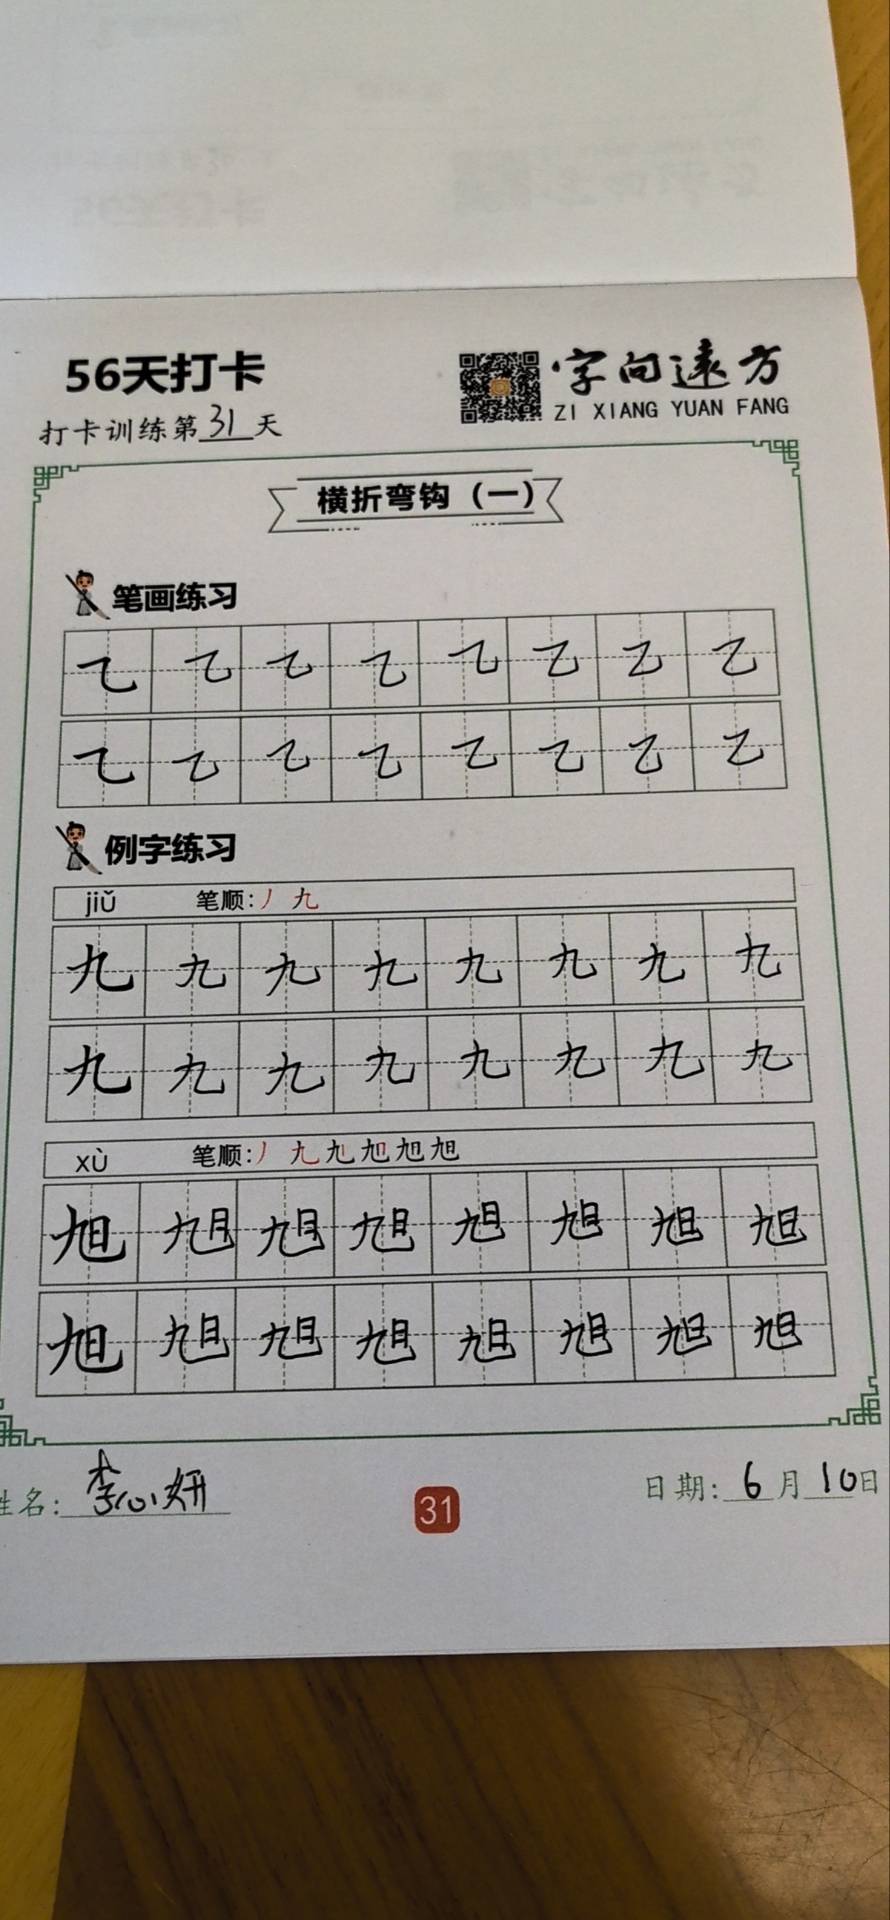 56天打卡
字向远方
ZI XIANG YUAN FANG
打卡训练第31天
横折弯钩（一）
笔画练习
乙 乙 乙 乙 乙 乙 乙 乙
乙 乙 乙 乙 乙 乙 乙 乙
例字练习
jiǔ 笔顺：丿 九
九 九 九 九 九 九 九 九
九 九 九 九 九 九 九 九
xù 笔顺：丿 九 旭 旭 旭 旭
旭 旭 旭 旭 旭 旭 旭 旭
旭 旭 旭 旭 旭 旭 旭 旭
姓名：李心妍
31
日期：6月10日